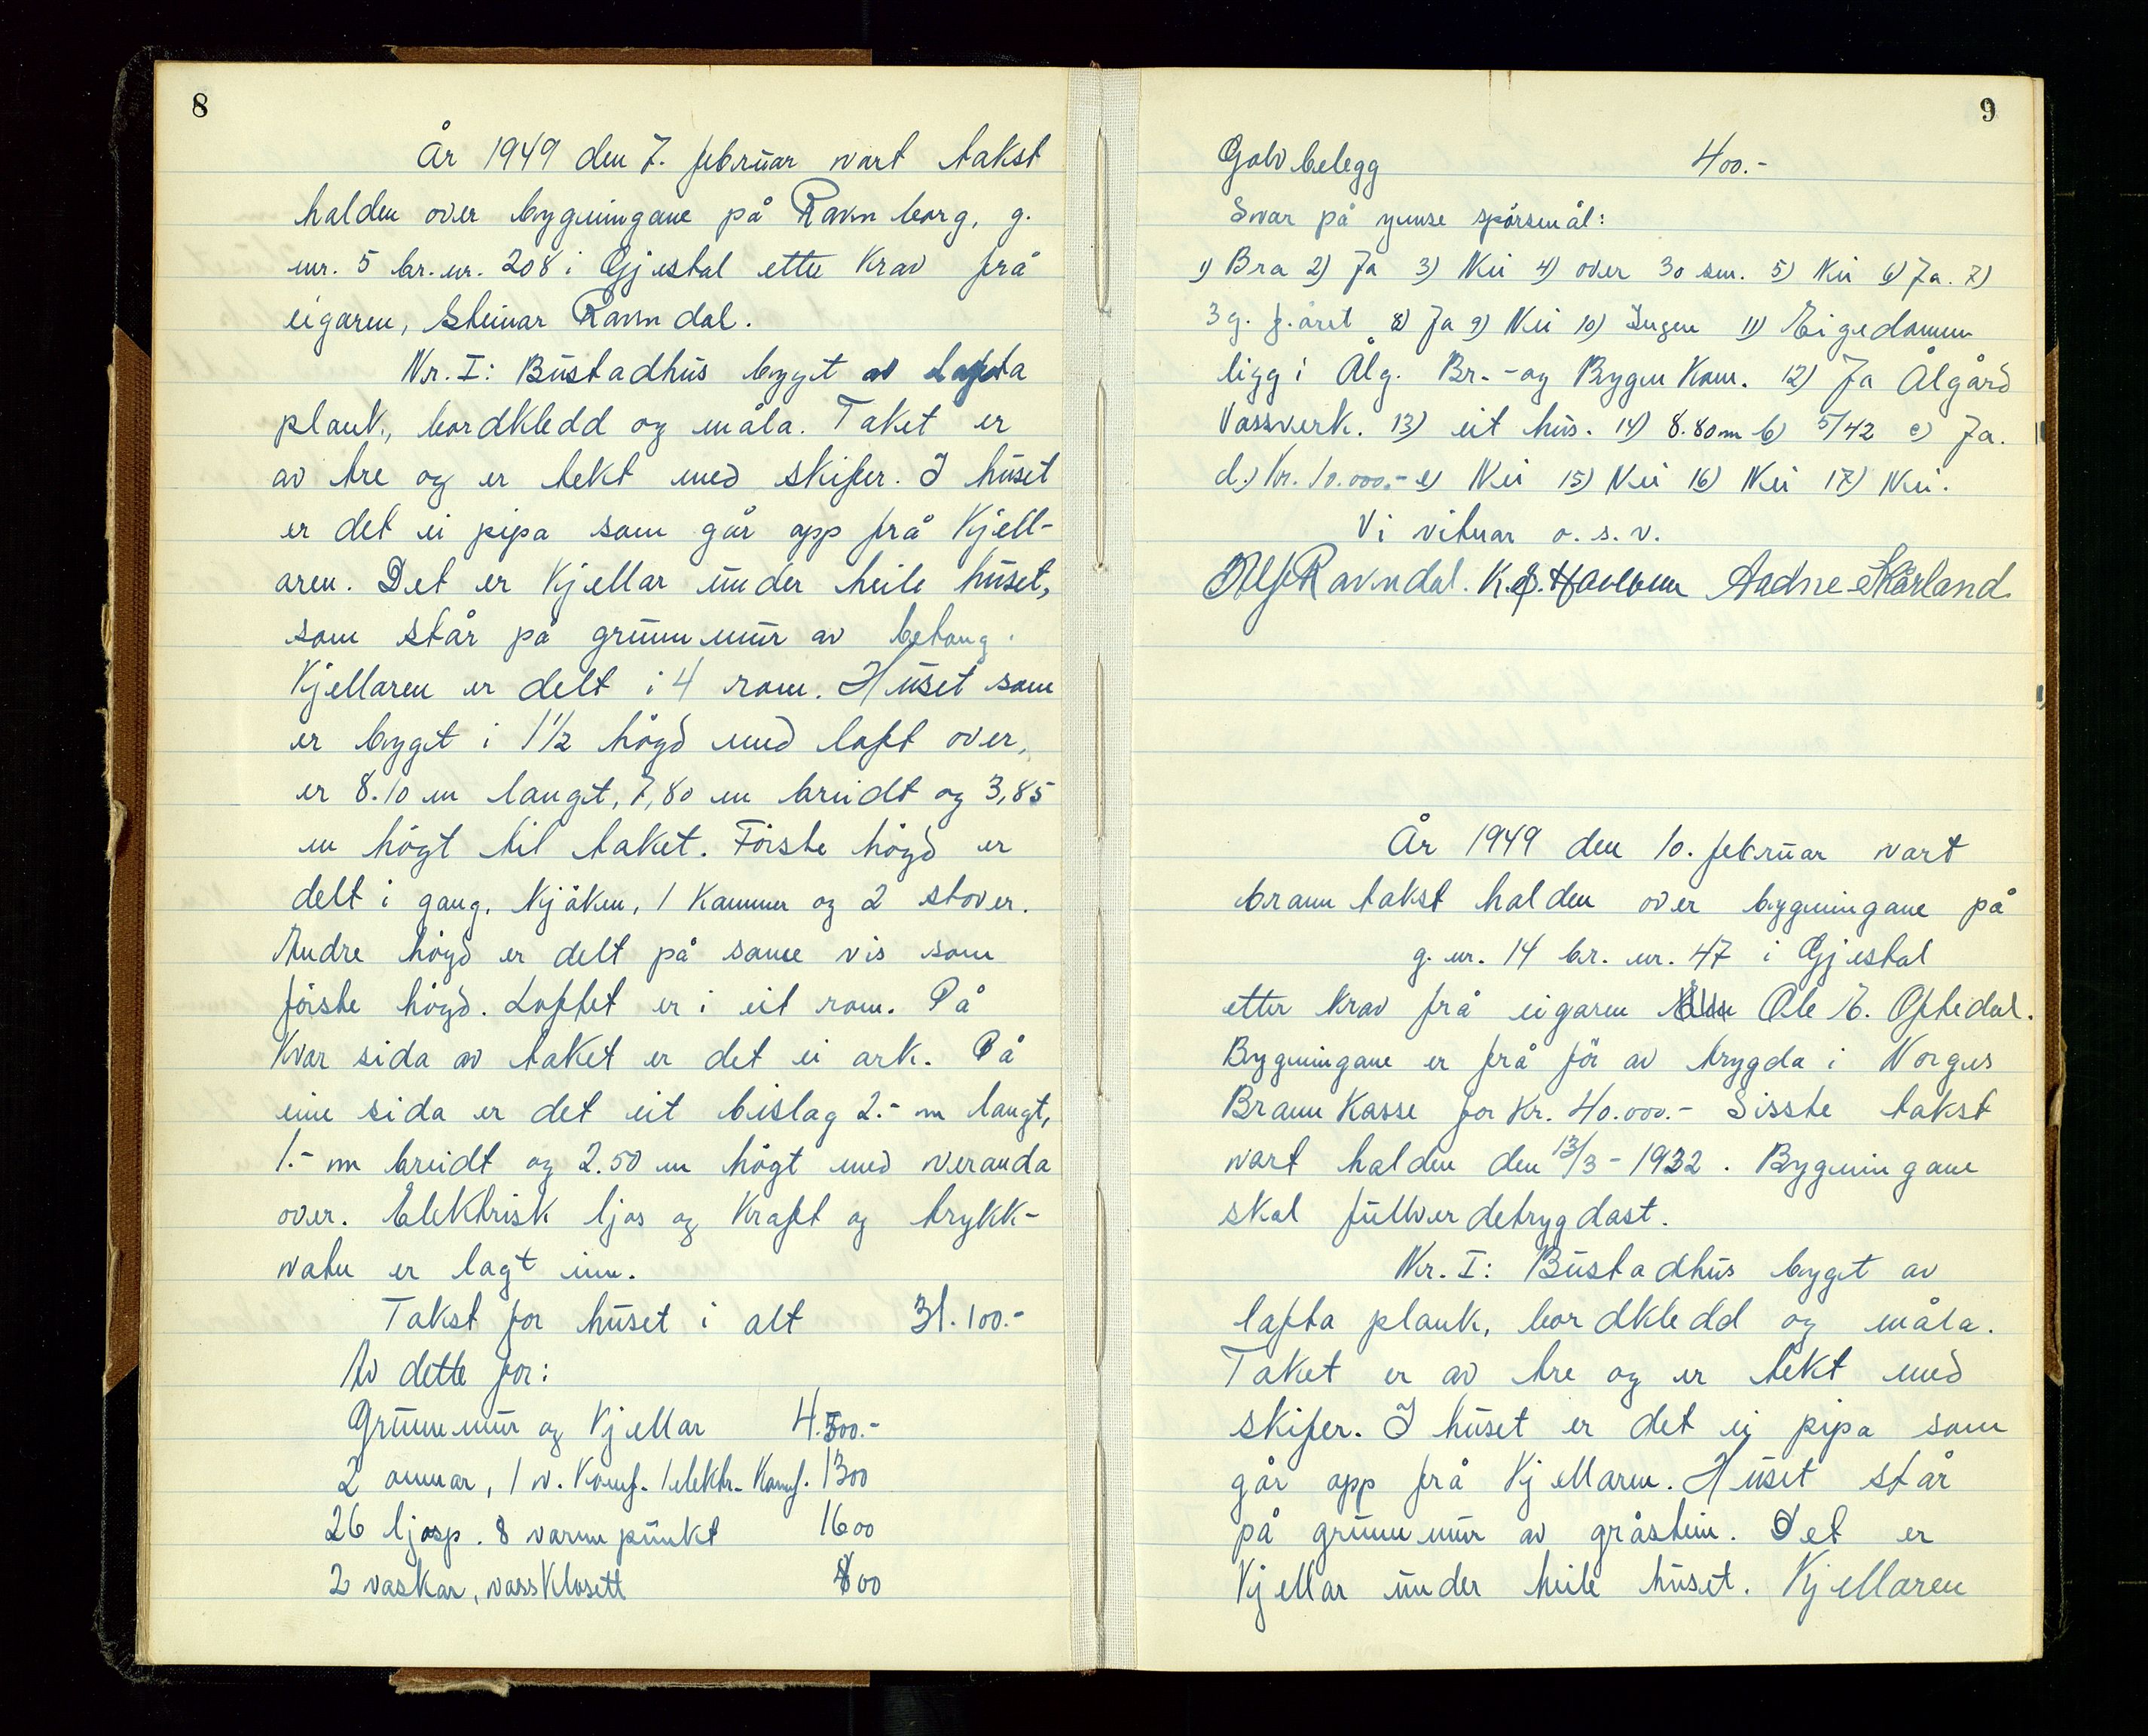 8
År 1949 den 7. februar vart takst
halden over bygningane på Ravnborg, g.
nr. 5 br. nr. 208 i Gjestal etter krav frå
eigaren, Steinar Ravndal.
Nr. I: Bustadhus bygt av lafta
plank, bordkledd og måla. Taket er
av tre og er tekt med skifer. I huset
er det ei pipa som går opp frå kjell-
aren. Det er kjellar under heile huset,
som står på grunnmur av betong.
Kjellaren er delt i 4 rom. Huset som
er bygt i 1 1/2 högd med loft over,
er 8.10 m langt, 7,80 m breidt og 3,85
m högt til taket. Förste högd er
delt i gang, kjöken, 1 kammer og 2 stover.
Andre högd er delt på same vis som
förste högd. Loftet er i eit rom. På
kvar sida av taket er det ei ark. På
eine sida er det eit bislag 2.- m langt,
1.- m breidt og 2.50 m högt med veranda
over. Elektrisk ljos og kraft og trykk-
vatn er lagt inn.
Takst for huset i alt 31.100.-
Av dette for:
Grunnmur og kjellar 4.500.-
2 omnar, 1 v. komf. 1 elektr. komf. 1300
26 ljosp. 8 varmepunkt 1600
2 vaskar, vassklosett 800
9
Golvbelegg 400.-
Svar på ymse spörsmål:
1) Bra 2) Ja 3) Nei 4) over 30 sm. 5) Nei 6) Ja. 7)
3 g. f. året 8) Ja 9) Nei 10) Ingen 11) Eigedomen
ligg i Ålg. Br.- og Bygn kom. 12) Ja Ålgård
Vassverk. 13) eit hus. 14) 8.80 m b) 5/42 c) Ja.
d.) Kr. 10.000.- e) Nei 15) Nei 16) Nei 17) Nei.
Vi vitnar o. s. v.
Ravndal. Aadne Skårland
År 1949 den 10. februar vart
branntakst halden over bygningane på
g. nr. 14 br. nr. 47 i Gjestal
etter krav frå eigaren Ole E. Oftedal.
Bygningane er frå för av trygda i Norges
Brannkasse for kr. 40.000.- Sisste takst
vart halden den 13/3 - 1932. Bygningane
skal fullverdetrygdast.
Nr. I: Bustadhus bygt av
lafta plank, bordkledd og måla.
Taket er av tre og er tekt med
skifer. I huset er det ei pipa som
går opp frå kjellaren. Huset står
på grunnmur av gråstein. Det er
kjellar under heile huset. Kjellaren